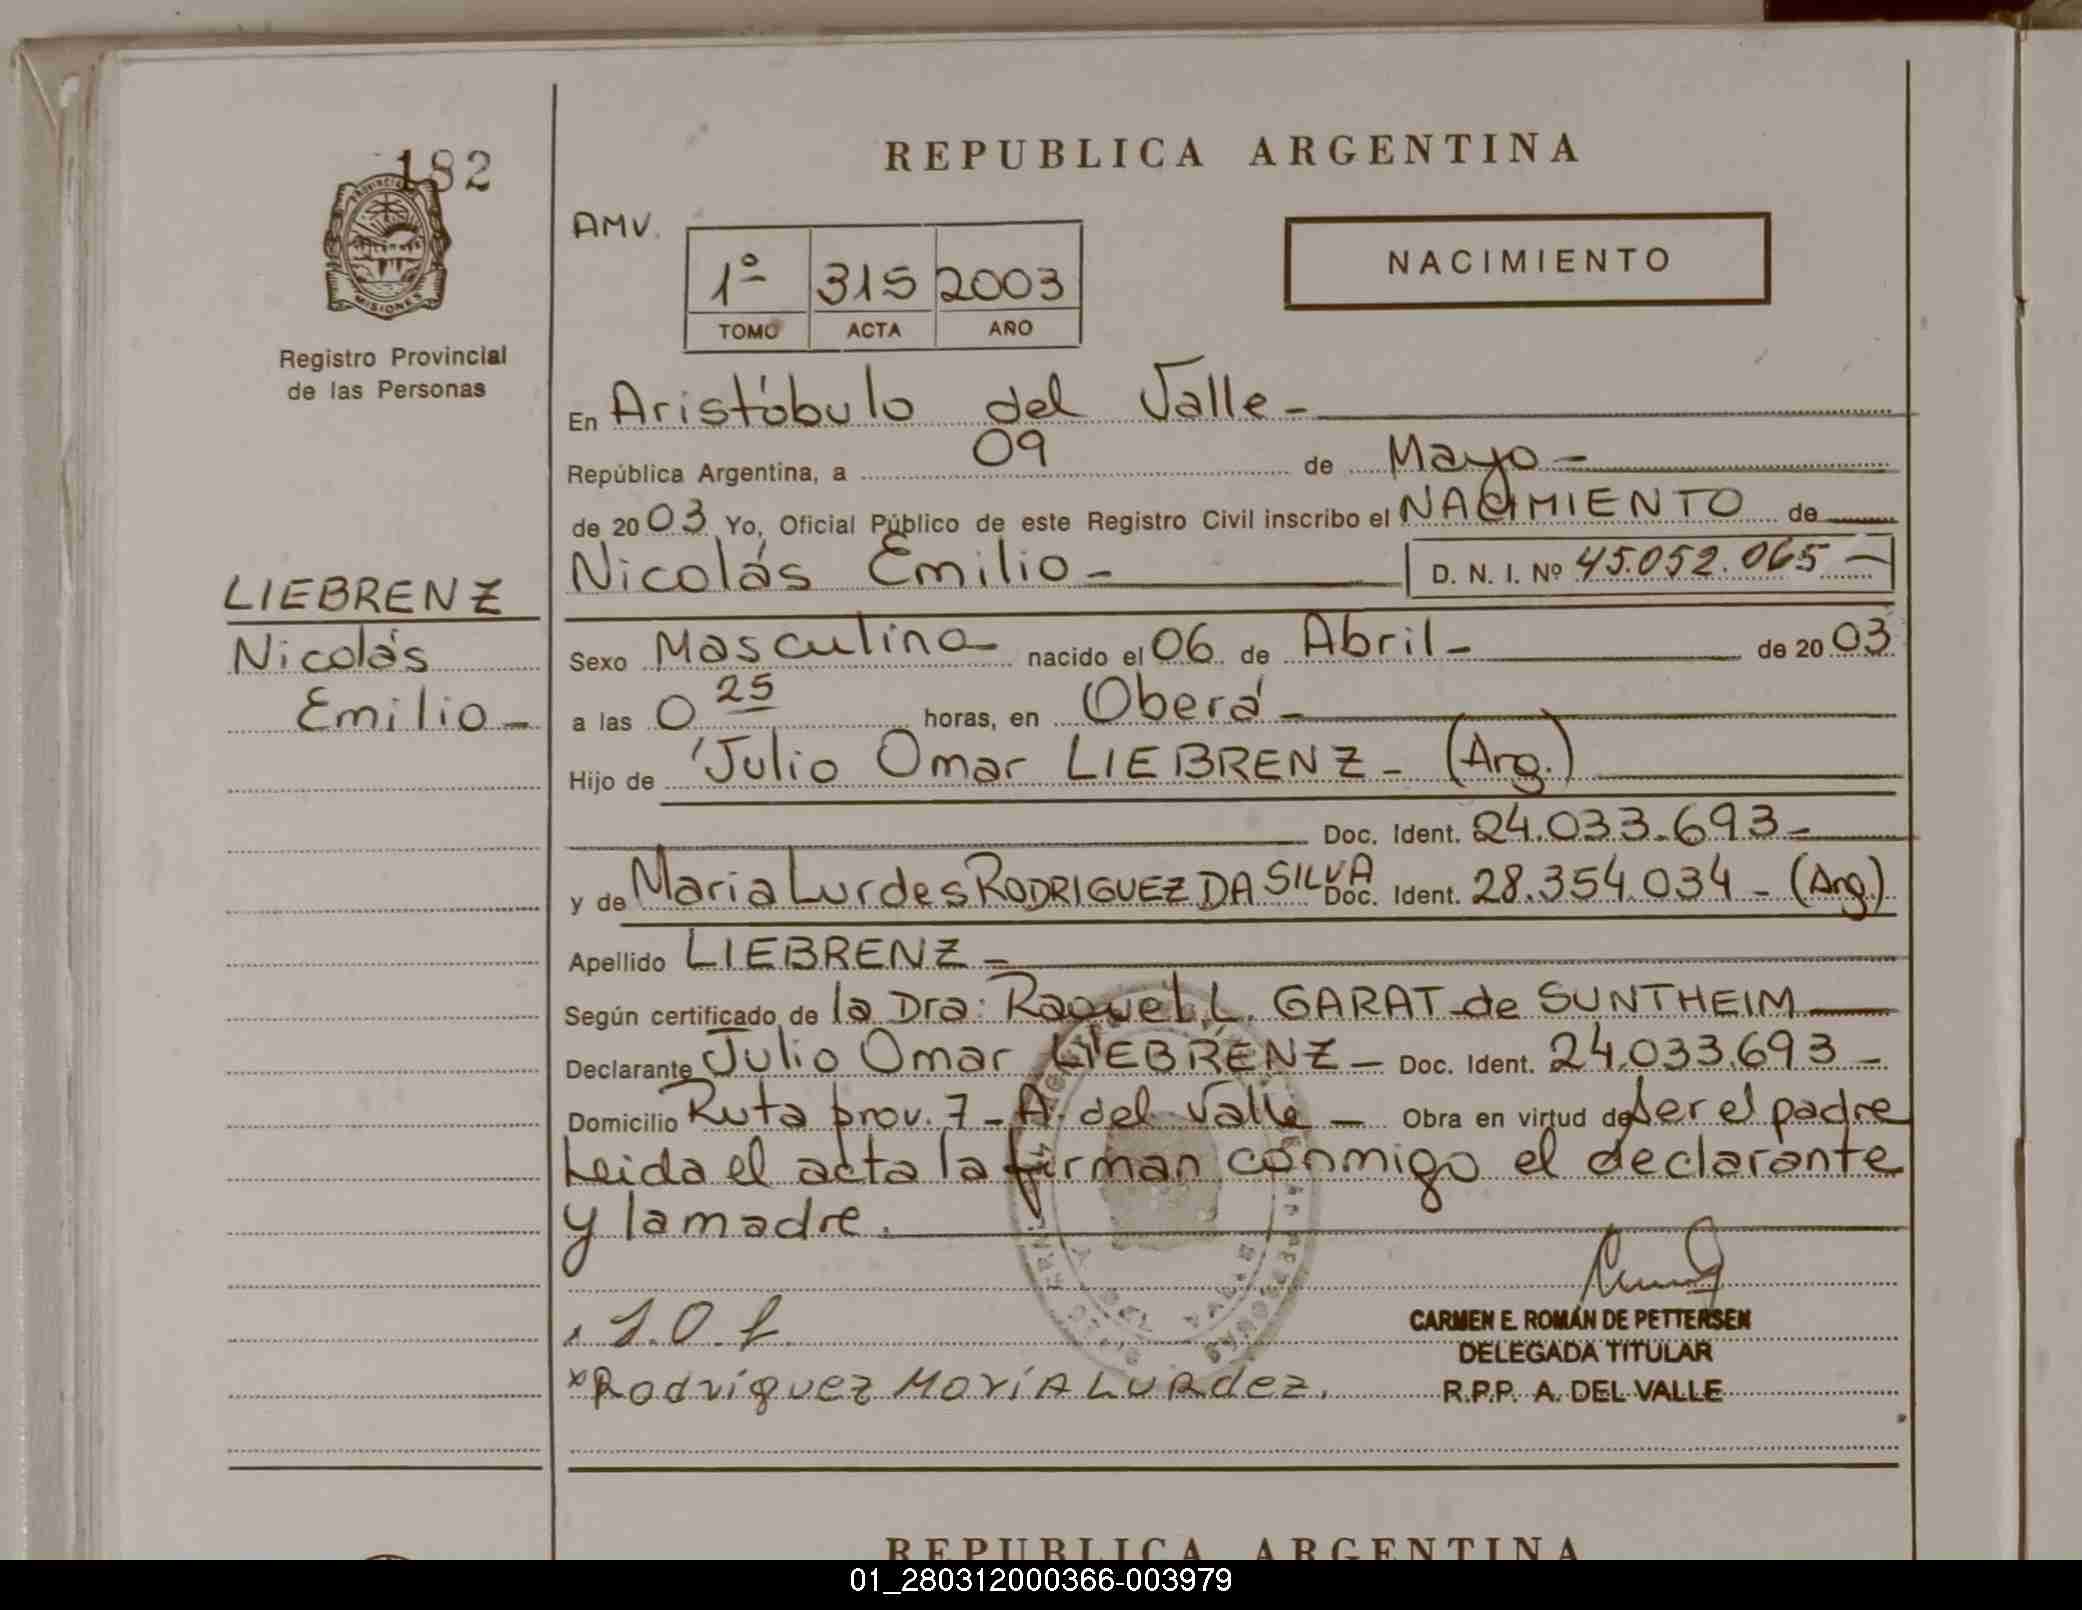 182
PROVINCIA
MISIONES
Registro Provincial
de las Personas
LIEBRENZ
Nicolás
Emilio -
REPUBLICA ARGENTINA
AMV.
NACIMIENTO
1º 315 2003
TOMO ACTA AÑO
En Aristóbulo del Valle -
República Argentina, a 09 de Mayo -
de 2003 Yo, Oficial Público de este Registro Civil inscribo el NACIMIENTO de
Nicolás Emilio - D. N. I. Nº 45.052.065 -
Sexo Masculino nacido el 06 de Abril - de 2003
a las 0 25 horas, en Oberá -
Hijo de Julio Omar LIEBRENZ - (Arg.)
Doc. Ident. 24.033.693 -
y de Maria Lurdes RODRIGUEZ DA SILVA Doc. Ident. 28.354.034 - (Arg.)
Apellido LIEBRENZ -
Según certificado de la Dra: Raquel L. GARAT de SUNTHEIM
Declarante Julio Omar LIEBRENZ - Doc. Ident. 24.033.693 -
Domicilio Ruta prov. 7 - A. del Valle - Obra en virtud de ser el padre
Leida el acta la firman conmigo el declarante
y la madre.
CARMEN E. ROMÁN DE PETTERSEN
DELEGADA TITULAR
R.P.P. A. DEL VALLE
x Rodriguez María Lurdez.
REPUBLICA ARGENTINA
01_280312000366-003979